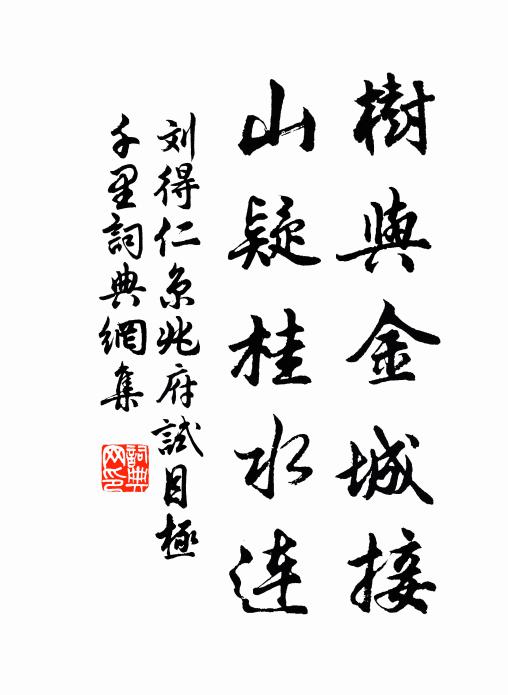 樹與金城接
山疑桂水连
刘得仁京兆府試目極
千里詞典網集
詞典
网印